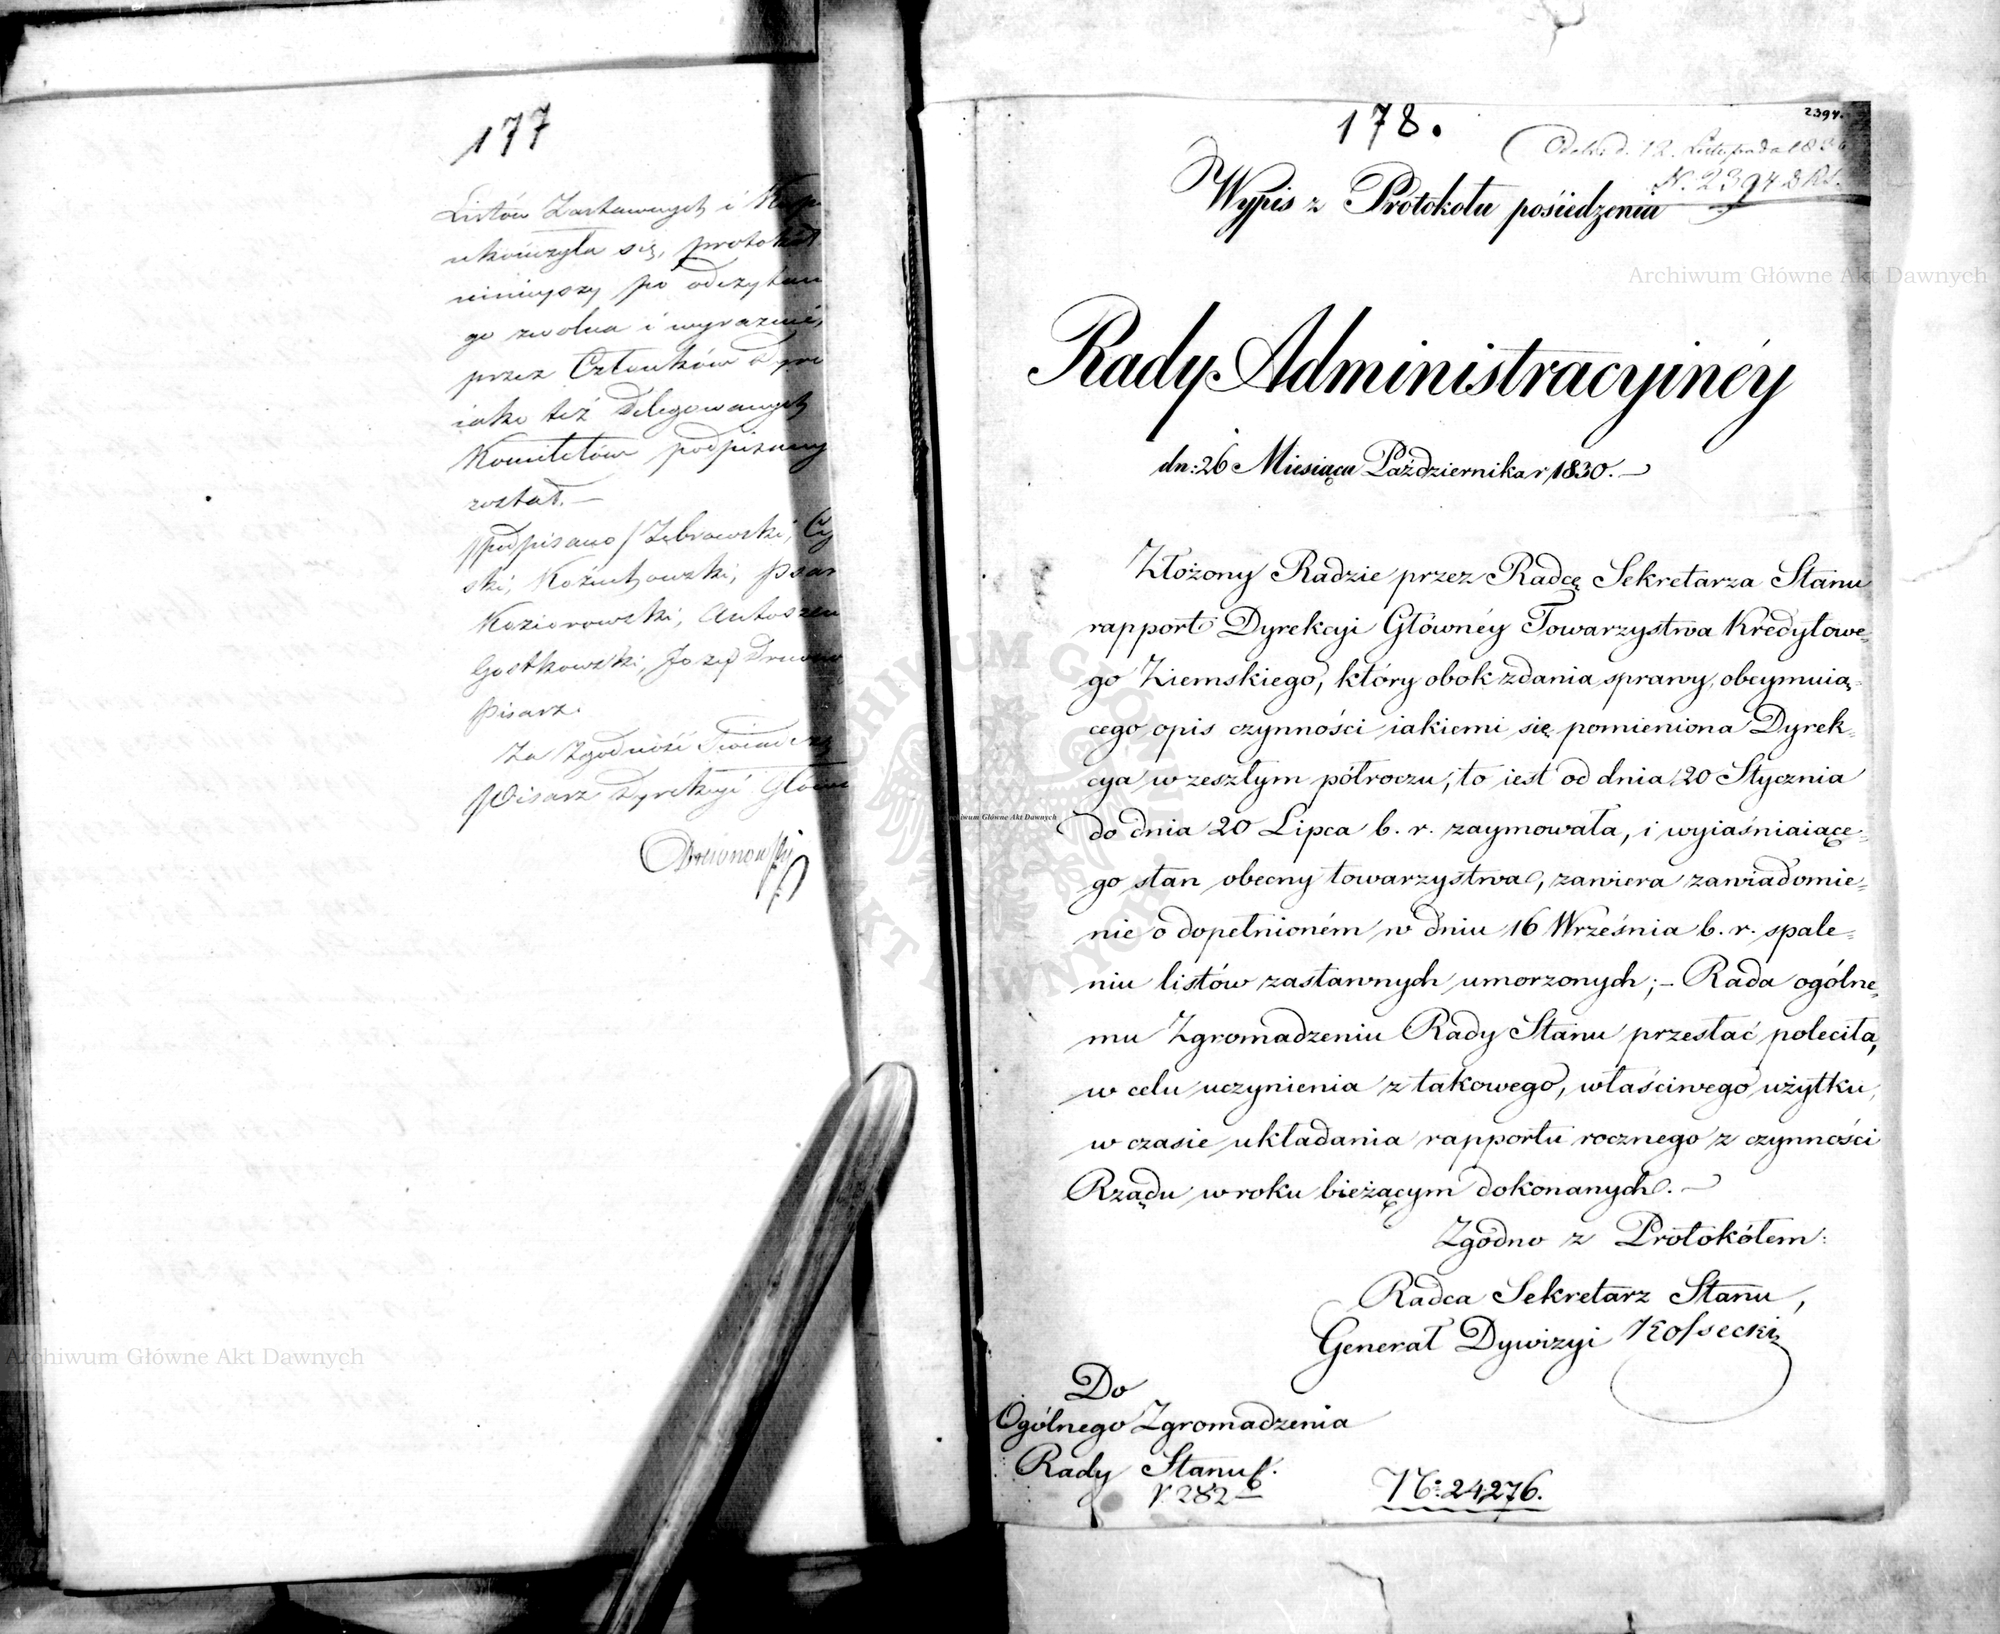 177
Listów Zastawnych i
ukończyła się, protokół
niniejszy po odczytan
go zwolna i wyraznie,
przez Członków Dyre
iako też Delegowanych
Komitetów podpisany
został.—
/podpisano/ Zębrowski,
ski, Kożuchowski,
Koziorowski,
Gostkowski, Józef
Pisarz.
Za Zgodność Świadczy
Pisarz Dyrekcyi Główn
Drewnowski
178.
2394.
Odebr. d. 12. Listopada 1830
N. 2394 D.R.S.
Wypis z Protokołu posiedzenia
Rady Administracyinéy
dn: 26 Miesiąca Października r 1830.—
Złożony Radzie przez Radcę Sekretarza Stanu
rapport Dyrekcyi Głównéy Towarzystwa Kredytowe=
go Ziemskiego, który obok zdania sprawy, obeymuią=
cego opis czynności iakiemi się pomieniona Dyrek=
cya w zeszłym półroczu, to iest od dnia 20 Stycznia
do dnia 20 Lipca b. r. zaymowała, i wyiaśniaiące=
go stan obecny towarzystwa, zawiera zawiadomie=
nie o dopełnioném w dniu 16 Września b. r. spale=
niu listów zastawnych umorzonych;— Rada ogólne=
mu Zgromadzeniu Rady Stanu przesłać poleciła,
w celu uczynienia z takowego, właściwego użytku,
w czasie układania rapportu rocznego z czynności
Rządu w roku bieżącym dokonanych.—
Zgodno z Protokółem:
Radca Sekretarz Stanu,
Generał Dywizyi Kossecki
Do
Ogólnego Zgromadzenia
Rady Stanu
282
N: 24,276.
Archiwum Główne Akt Dawnych
Archiwum Główne Akt Dawnych
Archiwum Główne Akt Dawnych
ARCHIWUM GŁÓWNE AKT DAWNYCH